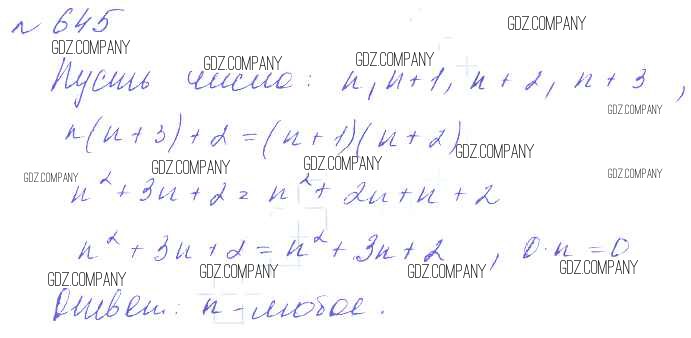 № 645
GDZ.COMPANY
GDZ.COMPANY
GDZ.COMPANY GDZ.COMPANY
Пусть числа: n, n+1, n+2, n+3,
GDZ.COMPANY
n(n+3)+2=(n+1)(n+2)
GDZ.COMPANY
GDZ.COMPANY GDZ.COMPANY GDZ.COMPANY GDZ.COMPANY
n²+3n+2=n²+2n+n+2
n²+3n+2=n²+3n+2, 0·n=0
GDZ.COMPANY GDZ.COMPANY GDZ.COMPANY GDZ.COMPANY
Ответ: n - любое.